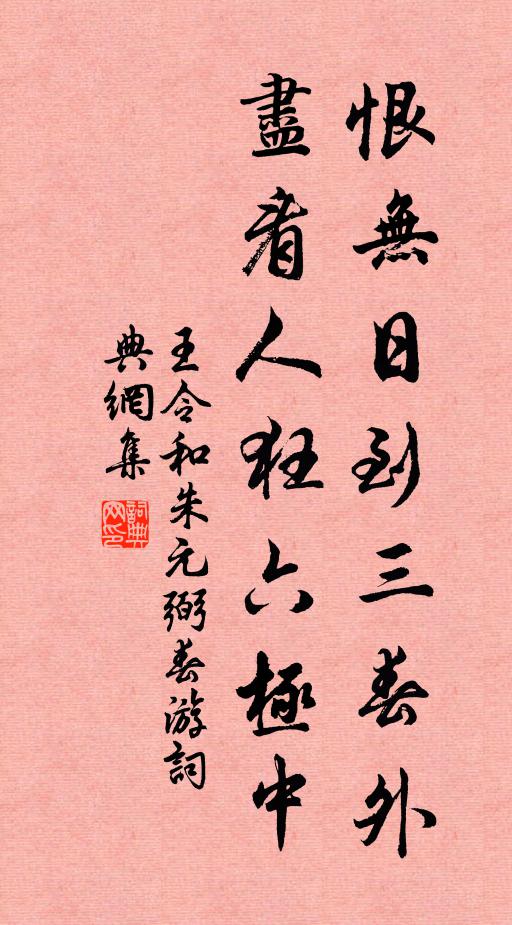 恨無日到三春外
盡看人狂六極中
王令和朱元弼春游詞
典網集
詞典網印